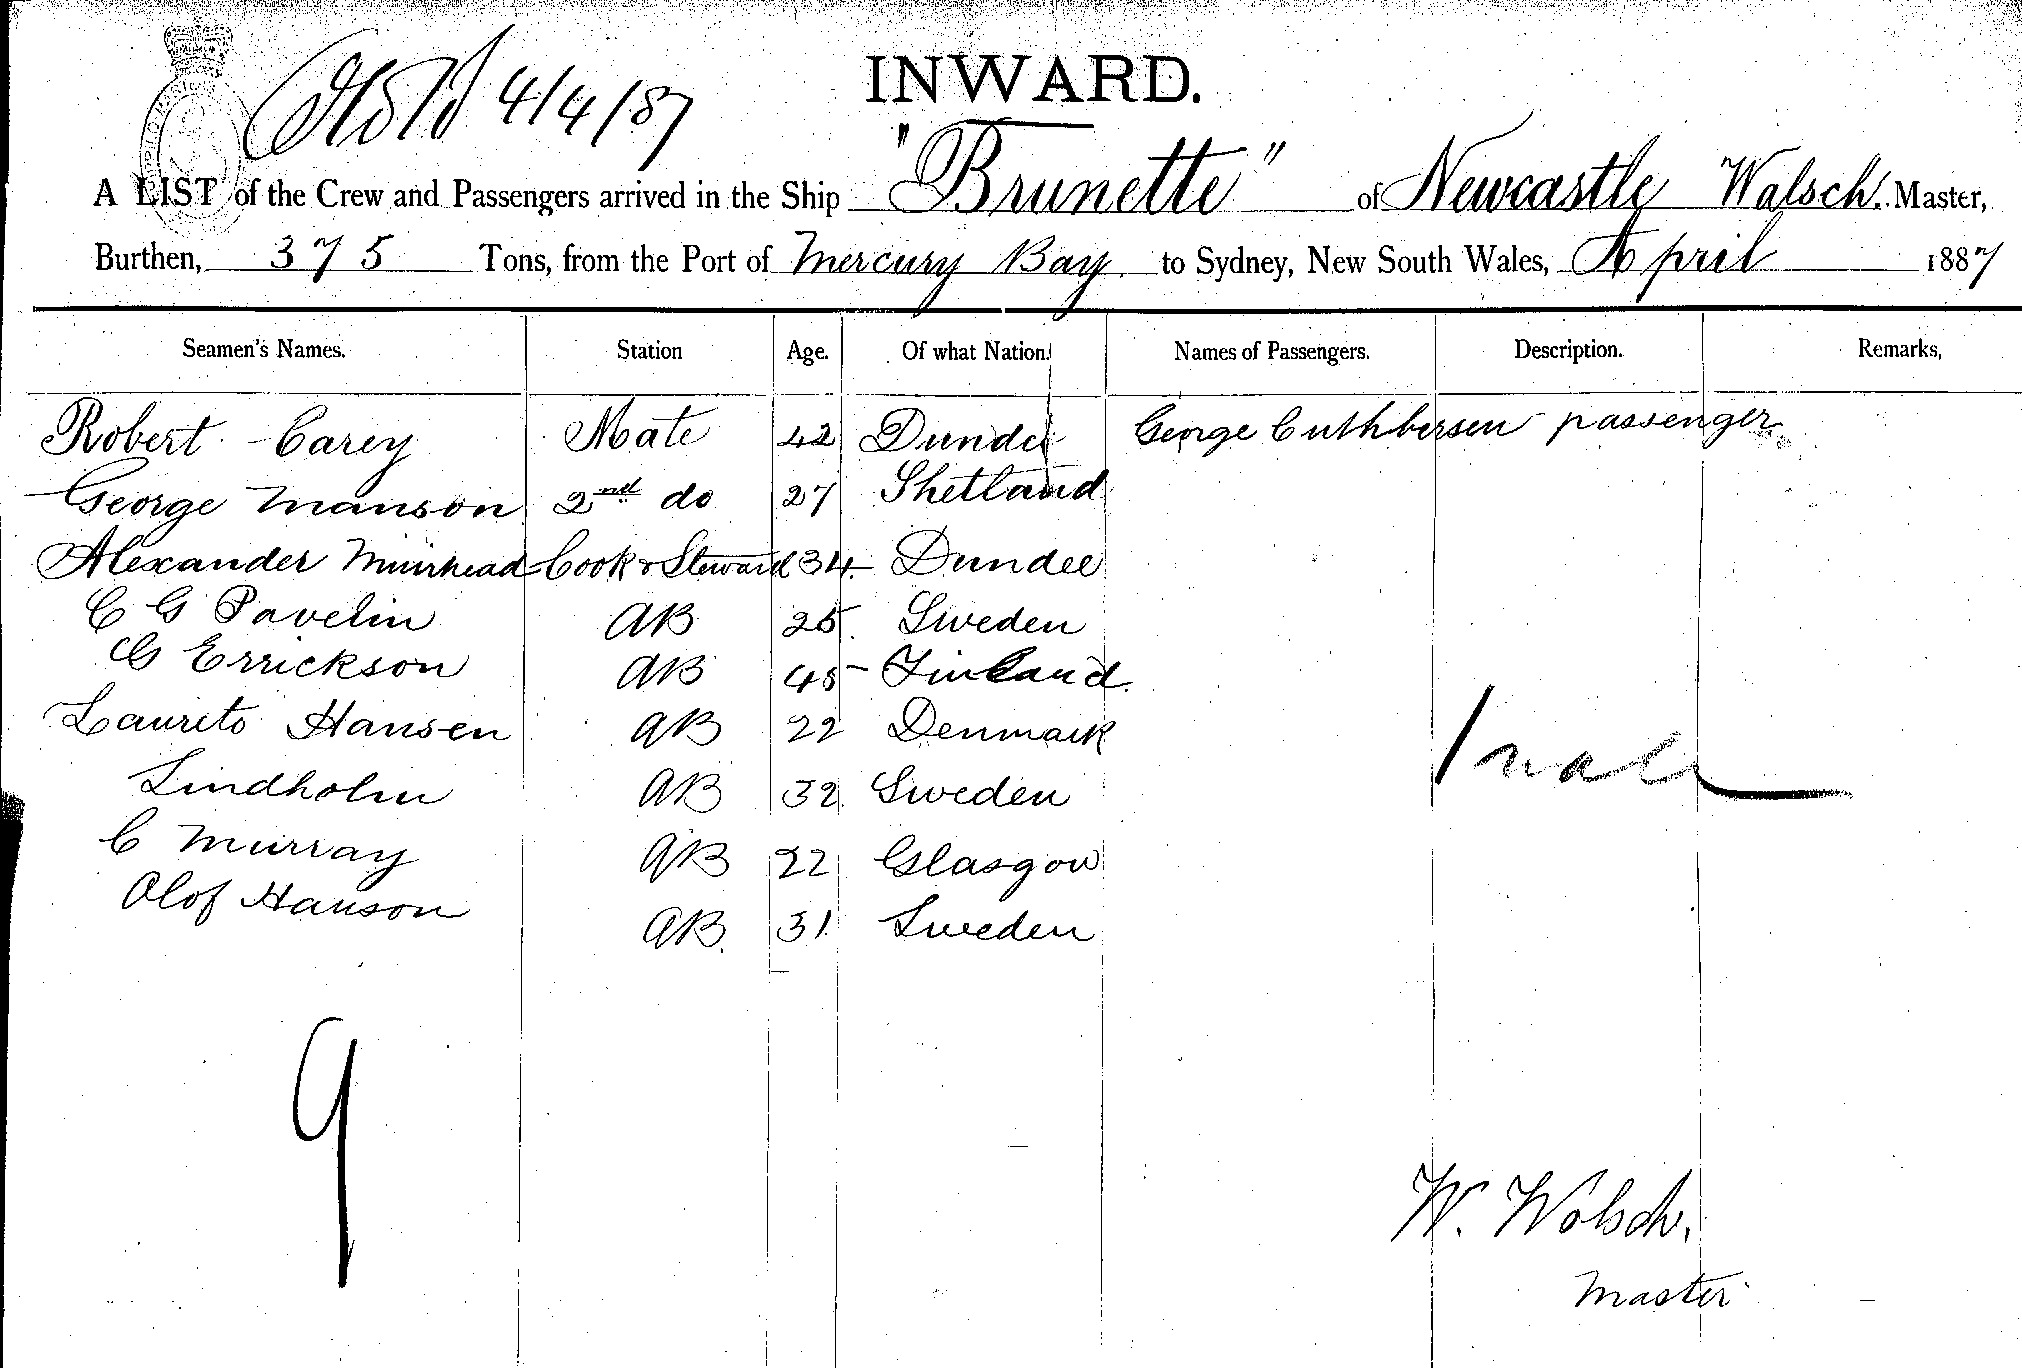 4/4/87
INWARD.
A LIST of the Crew and Passengers arrived in the Ship "Brunette" of Newcastle Walsch. Master,
Burthen, 375 Tons, from the Port of Mercury Bay to Sydney, New South Wales, April 1887
Seamen's Names. Station Age. Of what Nation. Names of Passengers. Description. Remarks,
Robert Carey Mate 42 Dundee George Cuthbersen passenger
George Manson 2nd do 27 Shetland
Alexander Muirhead Cook & Steward 34 Dundee
C G Pavelin AB 25 Sweden
G Errickson AB 45 Finland
Laurits Hansen AB 22 Denmark
Lindholm AB 32 Sweden
C Murray AB 22 Glasgow
Olof Hanson AB 31 Sweden
1 male
9
W. Walsch.
Master